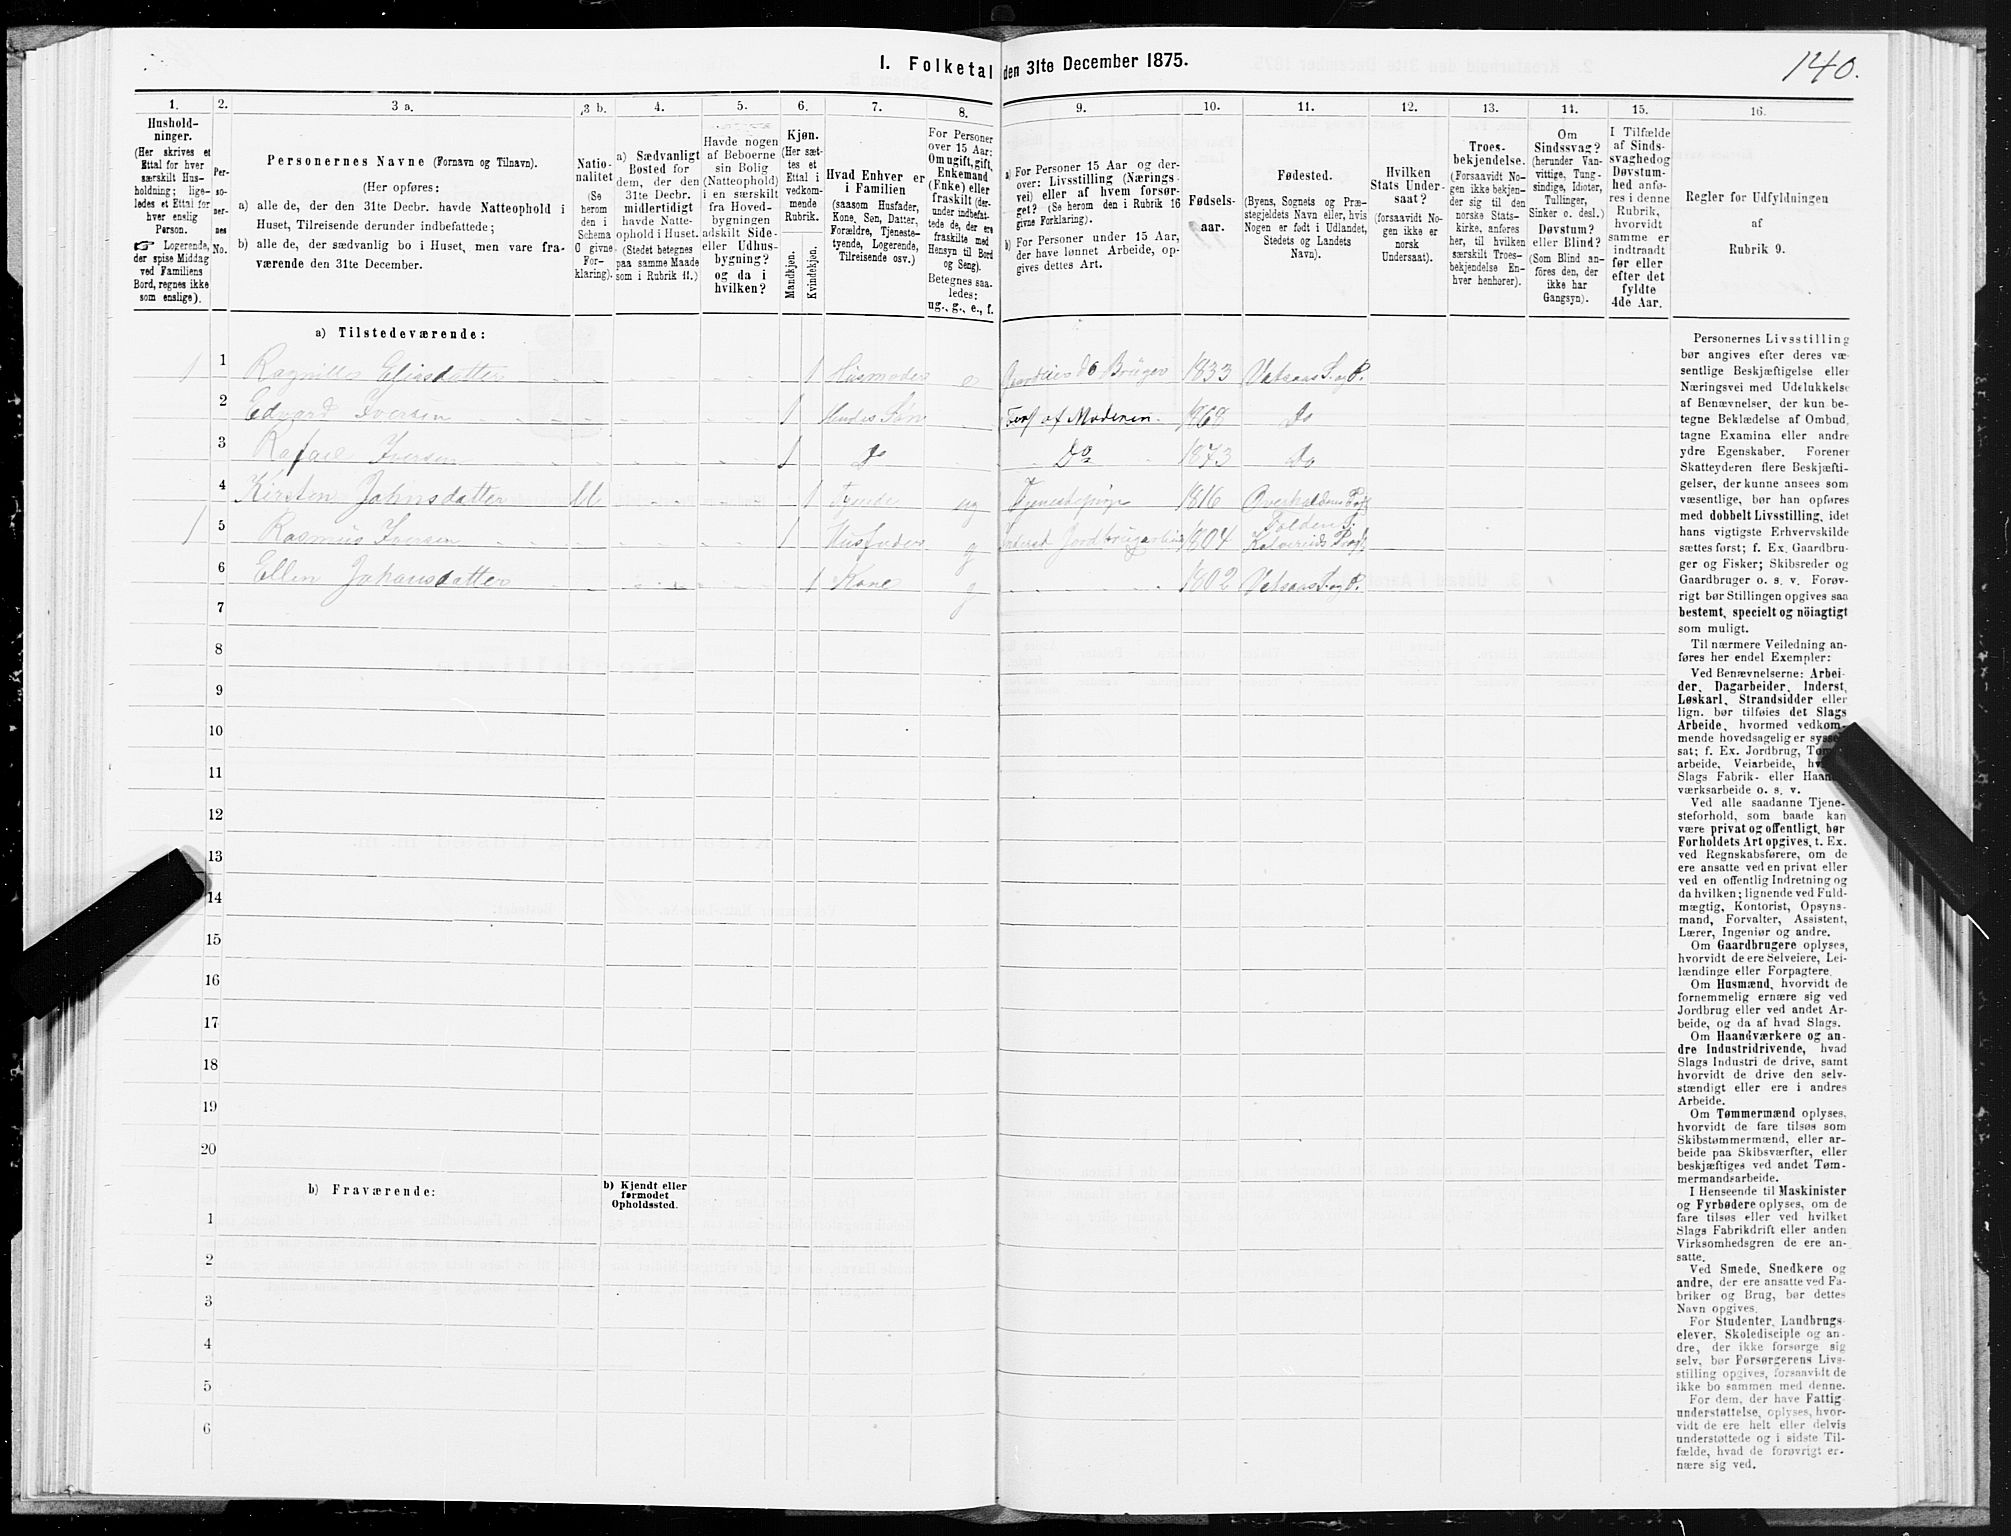 I. Folketal den 31te December 1875.
140.
1.
Hushold-
ninger.
(Her skrives et
Ettal for hver
særskilt Hus-
holdning; lige-
ledes et Ettal for
hver enslig
Person.
Logerende,
der spise Middag
ved Familiens
Bord, regnes ikke
som enslige).
2.
Per-
so-
ner-
nes
No.
3 a.
Personernes Navne (Fornavn og Tilnavn).
(Her opføres:
a) alle de, der den 31te Decbr. havde Natteophold i
Huset, Tilreisende derunder indbefattede;
b) alle de, der sædvanlig bo i Huset, men vare fra-
værende den 31te December.
3 b.
Natio-
nalitet
(Se
herom
den i
Schema
C givne
For-
klaring).
4.
a) Sædvanligt
Bosted for
dem, der den
31te Decbr.
midlertidigt
havde Natte-
ophold i Huset.
(Stedet betegnes
paa samme Maade
som i Rubrik 11.)
5.
Havde nogen
af Beboerne
sin Bolig
(Natteophold)
i en særskilt
fra Hoved-
bygningen
adskilt Side-
eller Udhus-
bygning?
og da i
hvilken?
6.
Kjøn.
(Her sæt-
tes et
Ettal i
vedkom-
mende
Rubrik.
Mandkjøn.
Kvindekjøn.
7.
Hvad Enhver er
i Familien
(saasom Husfader,
Kone, Søn, Datter,
Forældre, Tjeneste-
tyende, Logerende,
Tilreisende osv.)
8.
For Personer
over 15 Aar:
Om ugift, gift,
Enkemand
(Enke) eller
fraskilt (der-
under indbefat-
tede de, der ere
fraskilte med
Hensyn til Bord
og Seng).
Betegnes saa-
ledes:
ug., g., e., f.
9.
a) For Personer 15 Aar og der-
over: Livsstilling (Nærings-
vei) eller af hvem forsør-
get? (Se herom den i Rubrik 16
givne Forklaring).
b) For Personer under 15 Aar,
der have lønnet Arbeide, op-
gives dettes Art.
10.
Fødsels-
aar.
11.
Fødested.
(Byens, Sognets og Præ-
stegjeldets Navn eller, hvis
Nogen er født i Udlandet,
Stedets og Landets
Navn).
12.
Hvilken
Stats Under-
saat?
(forsaavidt No-
gen ikke er
norsk
Undersaat).
13.
Troes-
bekjendelse.
(Forsaavidt No-
gen ikke bekjen-
der sig til den
norske Stats-
kirke, anføres
her, til hvilken
særskilt Troes-
bekjendelse En-
hver henhører).
14.
Om
Sindssvag?
(herunder Van-
vittige, Tung-
sindige, Idioter,
Tullinger,
Sinker o. desl.)
Døvstum?
eller Blind?
(Som Blind an-
føres den, der
ikke har
Gangsyn).
15.
I Tilfælde
af Sinds-
svaghed og
Døvstum-
hed anfø-
res i denne
Rubrik,
hvorvidt
samme er
indtraadt
før eller
efter det
fyldte
4de Aar.
16.
Regler for Udfyldningen
af
Rubrik 9.
a) Tilstedeværende:
1 1 Ragnille Eliasdatter 1 Husmoder e Brüger 1833 Vatsaas S. og P.
2 Edvard Iversen 1 Hendes Søn Fors af Moderen 1868 Do
3 Rafael Iversen 1 Do Do 1873 Do
4 Kirsten Johnsdatter 1 Tyende ug Tjenestepige 1816 Overhaldens Præst
1 5 Rasmus Iversen 1 Husfader g 1804 Foldens S.
6 Ellen Johansdatter 1 Kone g 1802 Vatsaas S. og P.
7
8
9
10
11
12
13
14
15
16
17
18
19
20
b) Fraværende:
b) Kjendt eller
formodet
Opholdssted.
1
2
3
4
5
6
Personernes Livsstilling
bør angives efter deres væ-
sentlige Beskjæftigelse eller
Næringsvei med Udelukkelse
af Benævnelser, der kun be-
tegne Beklædelse af Ombud,
tagne Examina eller andre
ydre Egenskaber. Forener
Skatteyderen flere Beskjæfti-
gelser, der kunne ansees som
væsentlige, bør han opføres
med dobbelt Livsstilling, idet
hans vigtigste Erhvervskilde
sættes først; f. Ex. Gaardbru-
ger og Fisker; Skibsreder og
Gaardbruger o. s. v. Forøv-
rigt bør Stillingen opgives saa
bestemt, specielt og nöiagtigt
som muligt.
Til nærmere Veiledning an-
føres her endel Exempler:
Ved Benævnelserne: Arbei-
der, Dagarbeider, Inderst,
Løskarl, Strandsidder eller
lign. bør tilføies det Slags
Arbeide, hvormed vedkom-
mende hovedsagelig er syssel-
sat; f. Ex. Jordbrug, Tømmer-
arbeide, Veiarbeide, hvad
Slags Fabrik- eller Haand-
værksarbeide o. s. v.
Ved alle saadanne Tjene-
steforhold, som baade kan
være privat og offentligt, bør
Forholdets Art opgives, t. Ex.
ved Regnskabsførere, om de
ere ansatte ved en privat eller
ved en offentlig Indretning og
da hvilken; lignende ved Fuld-
mægtig, Kontorist, Opsyns-
mand, Forvalter, Assistent,
Lærer, Ingeniør og andre.
Om Gaardbrugere oplyses,
hvorvidt de ere Selveiere, Lei-
lændinge eller Forpagtere.
Om Husmænd, hvorvidt de
fornemmelig ernære sig ved
Jordbrug eller ved andet Ar-
beide, og da af hvad Slags.
Om Haandværkere og an-
dre Industridrivende, hvad
Slags Industri de drive, samt
hvorvidt de drive den selv-
stændigt eller ere i andres
Arbeide.
Om Tømmermænd oplyses,
hvorvidt de fare tilsøs som
Skibstømmermænd, eller ar-
beide paa Skibsværfter, eller
beskjæftiges ved andet Tøm-
mermandsarbeide.
I Henseende til Maskinister
og Fyrbødere oplyses, om de
fare tilsøs eller ved hvilket
Slags Fabrikdrift eller anden
Virksomhedsgren de ere an-
satte.
Ved Smede, Snedkere og
andre, der ere ansatte ved Fa-
briker og Brug, bør dettes
Navn opgives.
For Studenter, Landbrugs-
elever, Skoledisciple og an-
dre, der ikke forsørge sig
selv, bør Forsørgerens Livs-
stilling opgives, forsaavidt de
ikke bo sammen med denne.
For dem, der have Fattig-
understøttelse, oplyses, hvor-
vidt de ere helt eller delvis
understøttede og i sidste Til-
fælde, hvad de forøvrigt er-
nære sig ved.